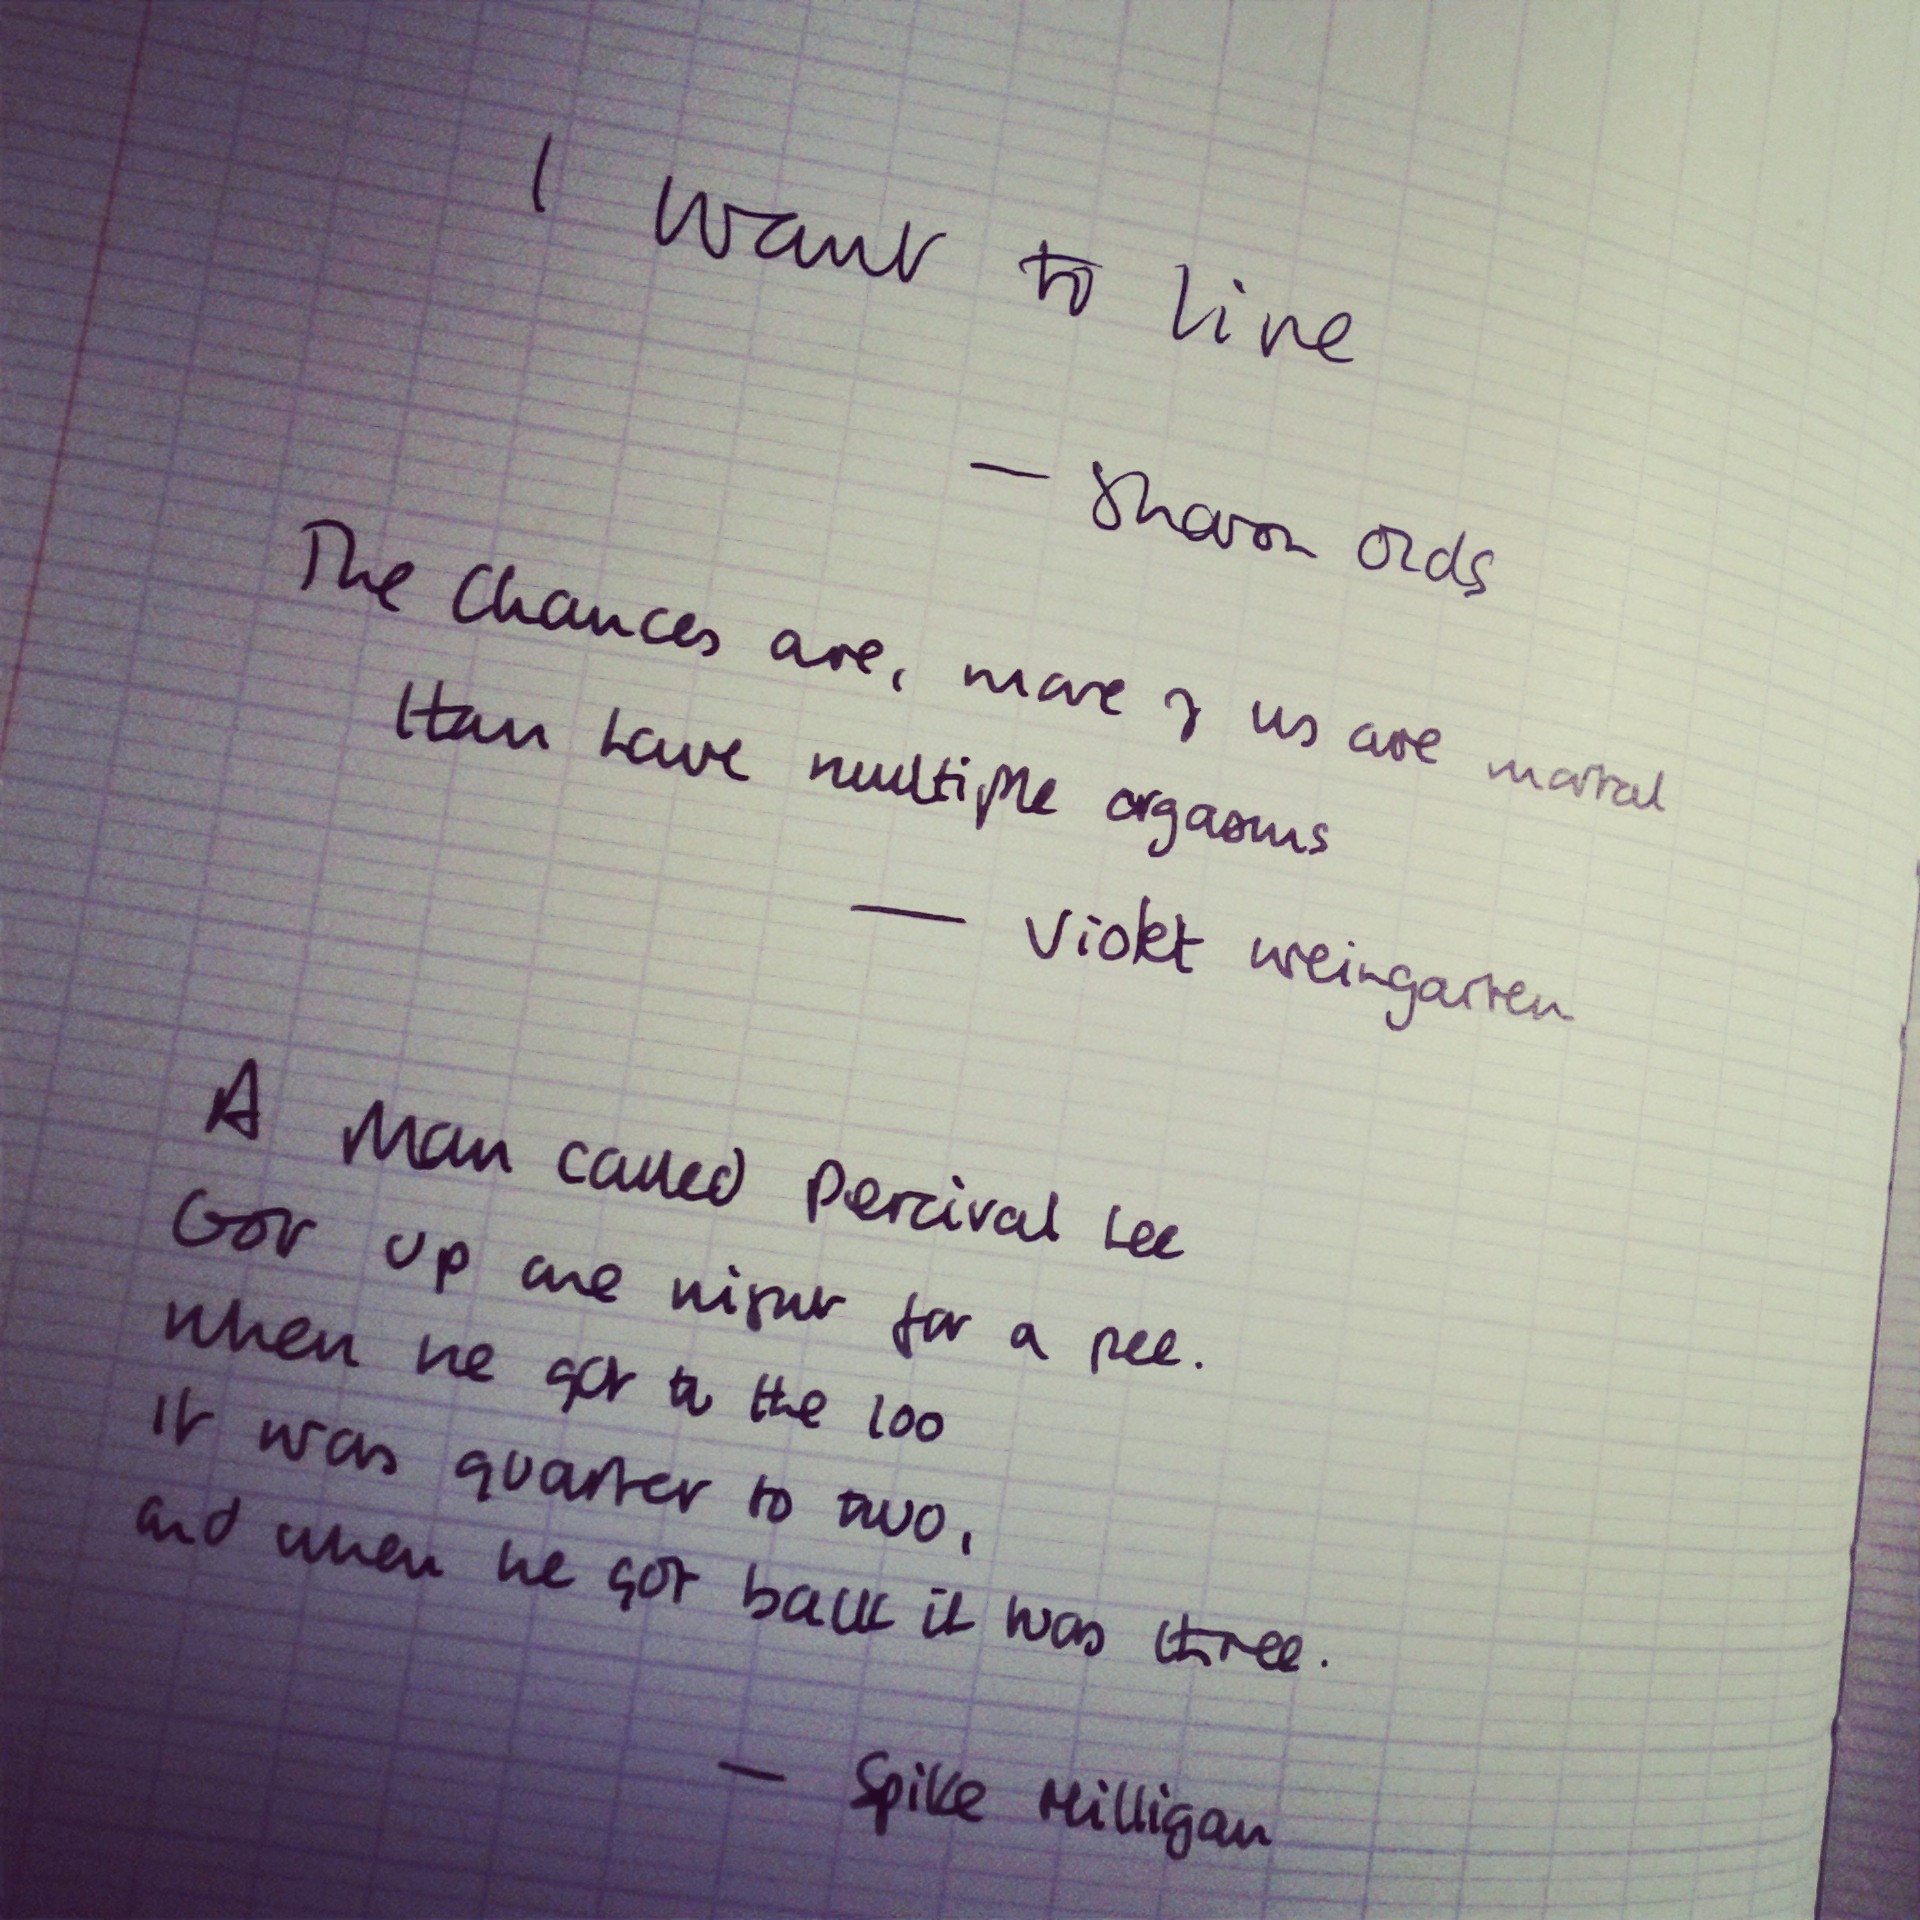 I want to live
— Sharon Olds
The Chances are, more of us are mortal
than have multiple orgasms
— Violet Weingarten
A Man called Percival Lee
Got up one night for a pee.
When he got to the loo
It was quarter to two,
and when he got back it was three.
— Spike Milligan